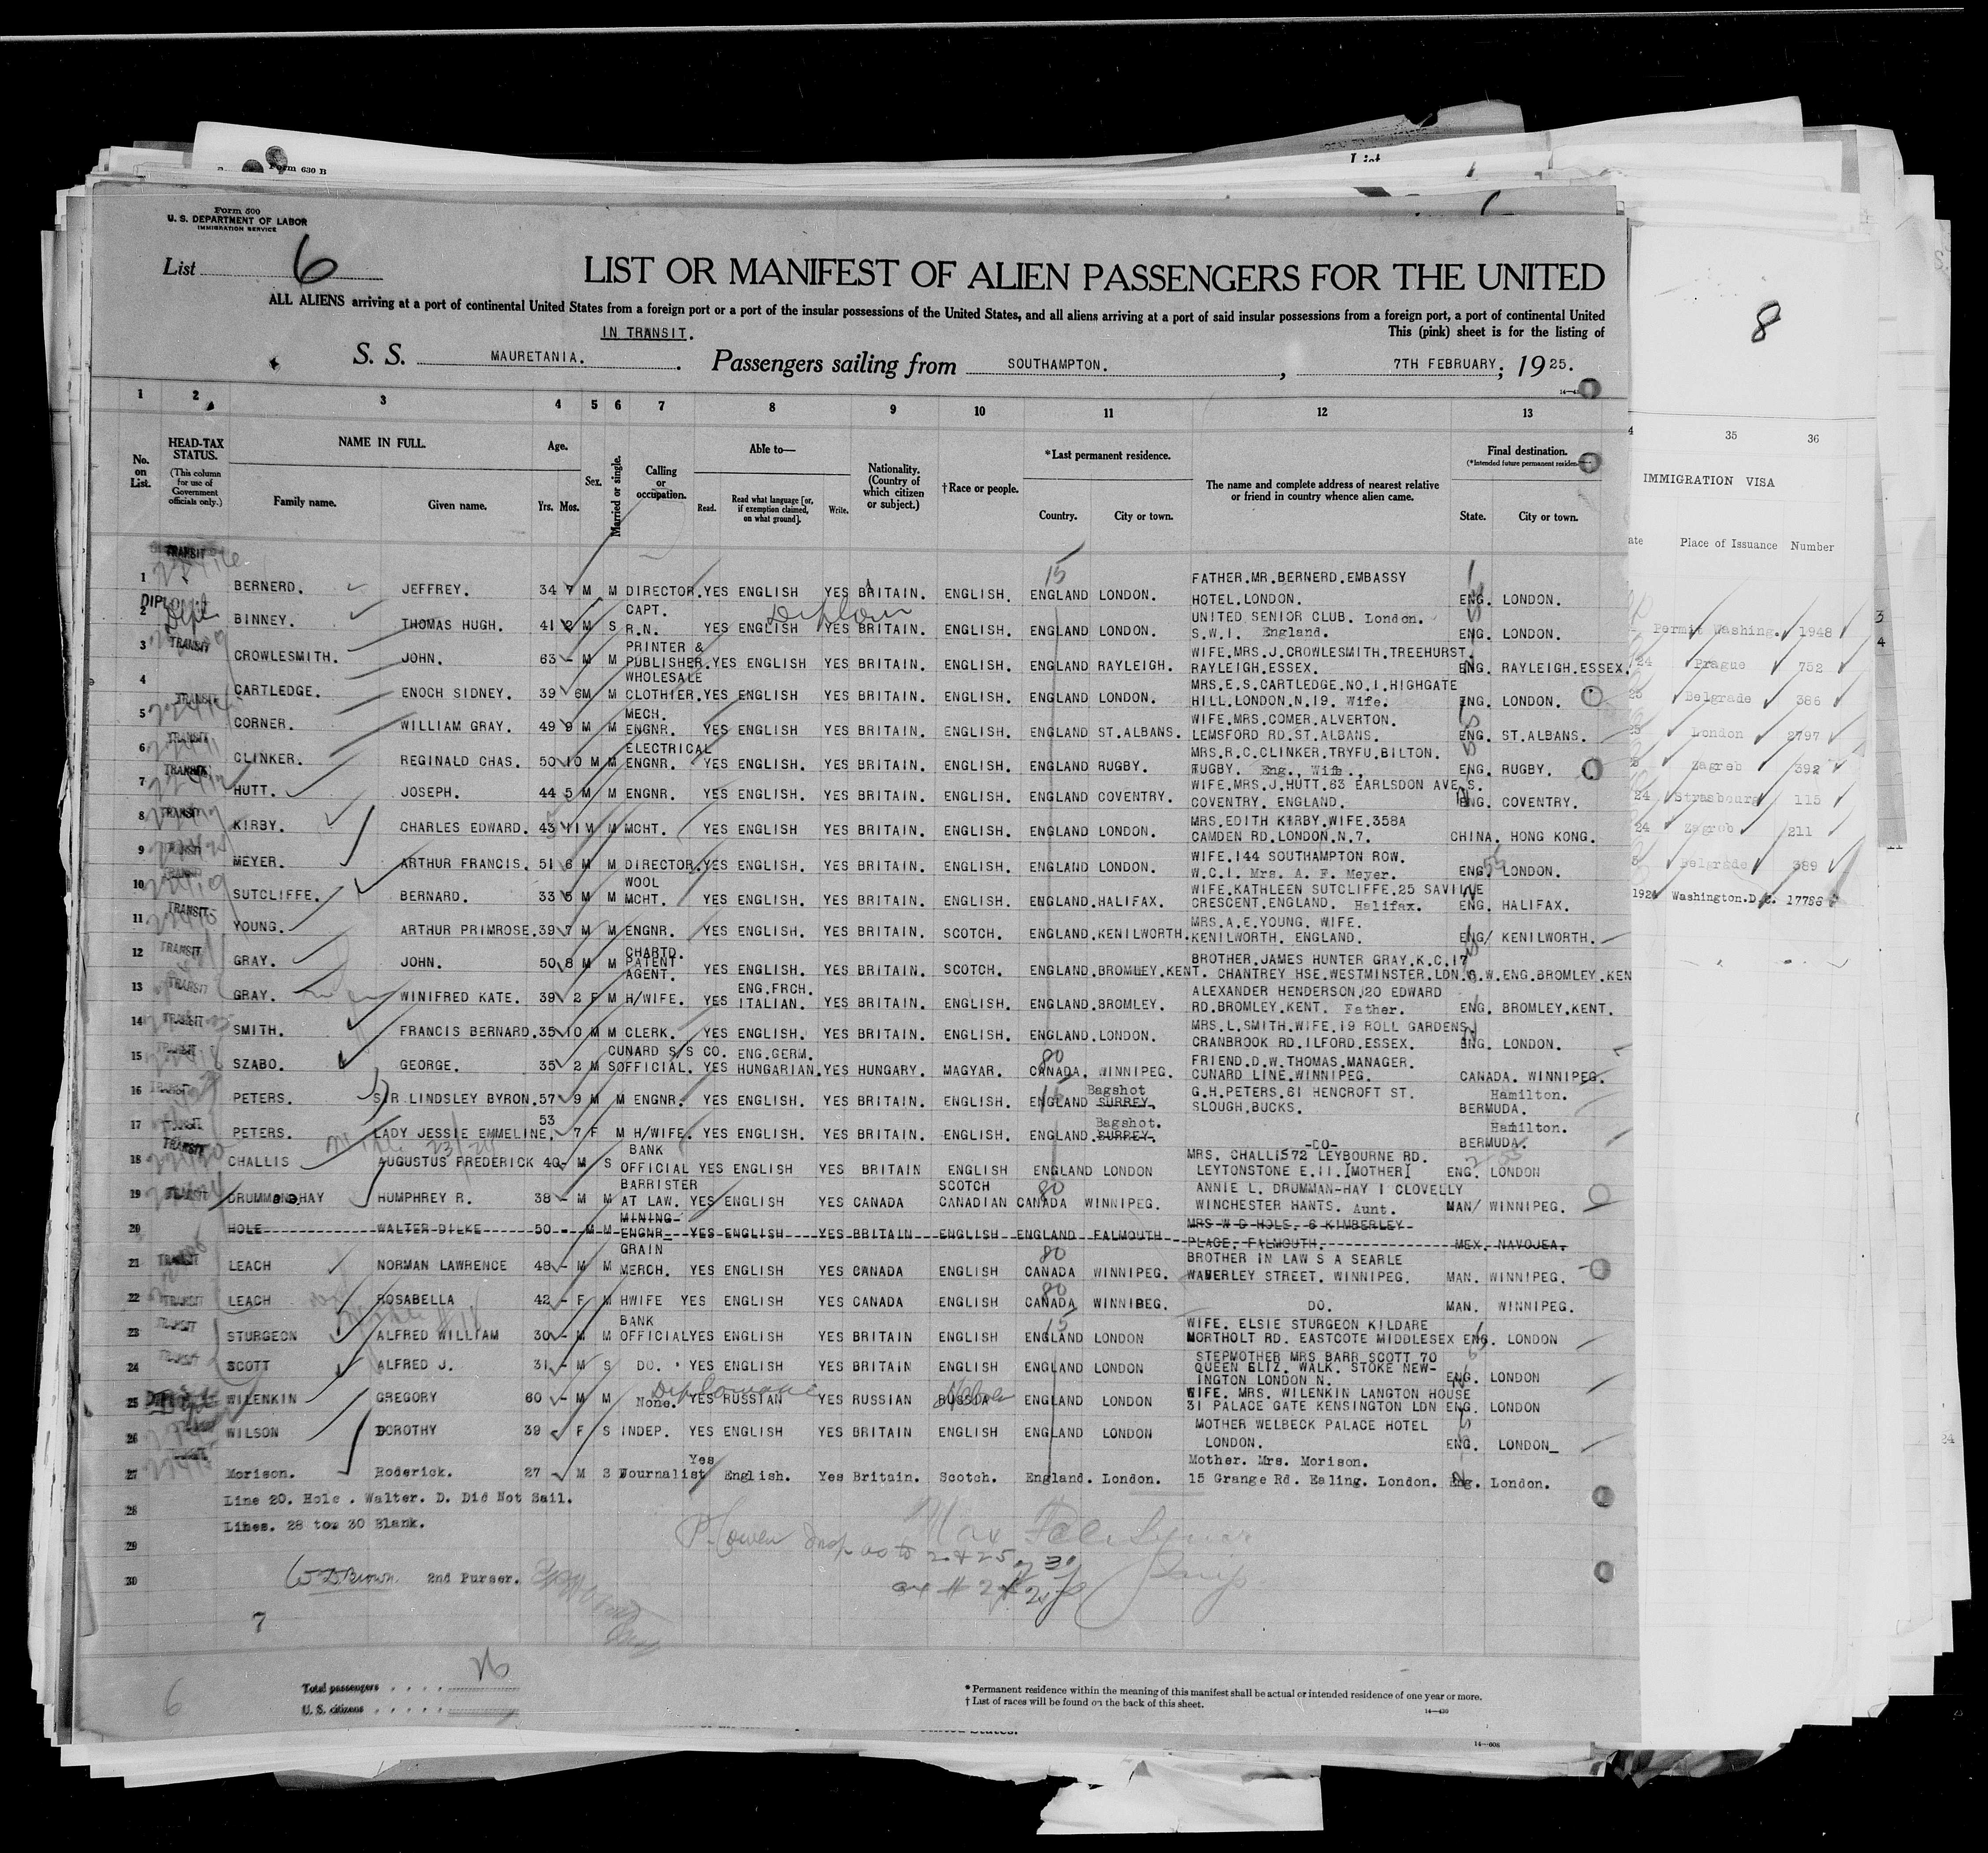 Form 630 B
List
Form 500
U. S. DEPARTMENT OF LABOR
IMMIGRATION SERVICE
List 6
LIST OR MANIFEST OF ALIEN PASSENGERS FOR THE UNITED
ALL ALIENS arriving at a port of continental United States from a foreign port or a port of the insular possessions of the United States, and all aliens arriving at a port of said insular possessions from a foreign port, a port of continental United
IN TRANSIT. This (pink) sheet is for the listing of
S. S. MAURETANIA. Passengers sailing from SOUTHAMPTON. , 7TH FEBRUARY; 1925.
1 2 3 4 5 6 7 8 9 10 11 12 13
No. on List.
HEAD-TAX STATUS.
(This column for use of Government officials only.)
NAME IN FULL.
Family name. Given name.
Age.
Yrs. Mos.
Sex.
Married or single.
Calling or occupation.
Able to—
Read. Read what language [or, if exemption claimed, on what ground]. Write.
Nationality. (Country of which citizen or subject.)
†Race or people.
*Last permanent residence.
Country. City or town.
The name and complete address of nearest relative or friend in country whence alien came.
Final destination.
(*Intended future permanent residence
State. City or town.
1 TRANSIT BERNERD. JEFFREY. 34 7 M M DIRECTOR. YES ENGLISH YES BRITAIN. ENGLISH. 15 ENGLAND LONDON. FATHER.MR.BERNERD.EMBASSY HOTEL.LONDON. ENG. LONDON.
2 Dipl BINNEY. THOMAS HUGH. 41 2 M S CAPT. R.N. YES ENGLISH YES BRITAIN. ENGLISH. ENGLAND LONDON. UNITED SENIOR CLUB. London. S.W.I. England. ENG. LONDON.
3 TRANSIT CROWLESMITH. JOHN. 63 - M M PRINTER & PUBLISHER. YES ENGLISH YES BRITAIN. ENGLISH. ENGLAND RAYLEIGH. WIFE.MRS.J.CROWLESMITH.TREEHURST. RAYLEIGH.ESSEX. ENG. RAYLEIGH.ESSEX.
4 CARTLEDGE. ENOCH SIDNEY. 39 6 M M WHOLESALE CLOTHIER. YES ENGLISH YES BRITAIN. ENGLISH. ENGLAND LONDON. MRS.E.S.CARTLEDGE.NO.I.HIGHGATE HILL.LONDON.N.19. Wife. ENG. LONDON.
5 TRANSIT CORNER. WILLIAM GRAY. 49 9 M M MECH. ENGNR. YES ENGLISH YES BRITAIN. ENGLISH. ENGLAND ST.ALBANS. WIFE.MRS.COMER.ALVERTON. LEMSFORD RD.ST.ALBANS. ENG. ST.ALBANS.
6 TRANSIT CLINKER. REGINALD CHAS. 50 10 M M ELECTRICAL ENGNR. YES ENGLISH. YES BRITAIN. ENGLISH. ENGLAND RUGBY. MRS.R.C.CLINKER.TRYFU.BILTON. RUGBY. Eng., Wife., ENG. RUGBY.
7 TRANSIT HUTT. JOSEPH. 44 5 M M ENGNR. YES ENGLISH. YES BRITAIN. ENGLISH. ENGLAND COVENTRY. WIFE.MRS.J.HUTT.63 EARLSDON AVE.S. COVENTRY. ENGLAND. ENG. COVENTRY.
8 TRANSIT KIRBY. CHARLES EDWARD. 43 11 M M MCHT. YES ENGLISH YES BRITAIN. ENGLISH. ENGLAND LONDON. MRS.EDITH KIRBY.WIFE.358A CAMDEN RD.LONDON.N.7. CHINA. HONG KONG.
9 MEYER. ARTHUR FRANCIS. 51 6 M M DIRECTOR. YES ENGLISH. YES BRITAIN. ENGLISH. ENGLAND LONDON. WIFE.144 SOUTHAMPTON ROW. W.C.I. Mrs. A. F. Meyer. ENG. LONDON.
10 SUTCLIFFE. BERNARD. 33 5 M M WOOL MCHT. YES ENGLISH. YES BRITAIN. ENGLISH. ENGLAND.HALIFAX. WIFE.KATHLEEN SUTCLIFFE.25 SAVILLE CRESCENT.ENGLAND. Halifax. ENG. HALIFAX.
11 TRANSIT YOUNG. ARTHUR PRIMROSE. 39 7 M M ENGNR. YES ENGLISH. YES BRITAIN. SCOTCH. ENGLAND.KENILWORTH. MRS.A.E.YOUNG. WIFE. KENILWORTH. ENGLAND. ENG/ KENILWORTH.
12 TRANSIT GRAY. JOHN. 50 8 M M CHARTD. PATENT AGENT. YES ENGLISH. YES BRITAIN. SCOTCH. ENGLAND.BROMLEY.KENT. BROTHER.JAMES HUNTER GRAY.K.C.17 CHANTREY HSE.WESTMINSTER.LDN.S.W.ENG.BROMLEY.KEN
13 TRANSIT GRAY. WINIFRED KATE. 39 2 F M H/WIFE. YES ENG.FRCH. ITALIAN. YES BRITAIN. ENGLISH. ENGLAND.BROMLEY. ALEXANDER HENDERSON.20 EDWARD RD.BROMLEY.KENT. Father. ENG. BROMLEY.KENT.
14 TRANSIT SMITH. FRANCIS BERNARD. 35 10 M M CLERK. YES ENGLISH. YES BRITAIN. ENGLISH. ENGLAND.LONDON. MRS.L.SMITH.WIFE.19 ROLL GARDENS. CRANBROOK RD.ILFORD.ESSEX. ENG. LONDON.
15 TRANSIT SZABO. GEORGE. 35 2 M S CUNARD S/S CO. OFFICIAL. YES ENG.GERM. HUNGARIAN. YES HUNGARY. MAGYAR. 80 CANADA. WINNIPEG. FRIEND.D.W.THOMAS.MANAGER. CUNARD LINE.WINNIPEG. CANADA. WINNIPEG.
16 TRANSIT PETERS. SIR LINDSLEY BYRON. 57 9 M M ENGNR. YES ENGLISH. YES BRITAIN. ENGLISH. 15 ENGLAND Bagshot SURREY. G.H.PETERS.61 HENCROFT ST. SLOUGH.BUCKS. Hamilton. BERMUDA.
17 TRANSIT PETERS. LADY JESSIE EMMELINE. 53 7 F M H/WIFE. YES ENGLISH. YES BRITAIN. ENGLISH. ENGLAND Bagshot. SURREY. -DO- Hamilton. BERMUDA.
18 TRANSIT CHALLIS AUGUSTUS FREDERICK 40 - M S BANK OFFICIAL YES ENGLISH YES BRITAIN ENGLISH ENGLAND LONDON MRS. CHALLIS 72 LEYBOURNE RD. LEYTONSTONE E.II.[MOTHER] ENG. LONDON
19 TRANSIT DRUMMOND.HAY HUMPHREY R. 38 - M M BARRISTER AT LAW. YES ENGLISH YES CANADA SCOTCH CANADIAN 80 CANADA WINNIPEG. ANNIE L. DRUMMAN-HAY I CLOVELLY WINCHESTER HANTS. Aunt. MAN/ WINNIPEG.
20 HOLE WALTER DILKE 50 - M M MINING ENGNR YES ENGLISH YES BRITAIN ENGLISH ENGLAND FALMOUTH MRS W G HOLE. 6 KIMBERLEY PLACE. FALMOUTH. MEX. NAVOJEA.
21 TRANSIT LEACH NORMAN LAWRENCE 48 - M M GRAIN MERCH. YES ENGLISH YES CANADA ENGLISH 80 CANADA WINNIPEG. BROTHER IN LAW S A SEARLE WAVERLEY STREET. WINNIPEG. MAN. WINNIPEG.
22 TRANSIT LEACH ROSABELLA 42 - F M HWIFE YES ENGLISH YES CANADA ENGLISH 80 CANADA WINNIBEG. DO. MAN. WINNIPEG.
23 TRANSIT STURGEON ALFRED WILLIAM 30 - M M BANK OFFICIAL YES ENGLISH YES BRITAIN ENGLISH 15 ENGLAND LONDON WIFE. ELSIE STURGEON KILDARE NORTHOLT RD. EASTCOTE MIDDLESEX ENG. LONDON
24 TRANSIT SCOTT ALFRED J. 31 - M S DO. YES ENGLISH YES BRITAIN ENGLISH ENGLAND LONDON STEPMOTHER MRS BARR SCOTT 70 QUEEN ELIZ. WALK. STOKE NEWINGTON LONDON N. ENG. LONDON
25 WILENKIN GREGORY 60 - M M Diplomatic None. YES RUSSIAN YES RUSSIAN RUSSIA Hebrew ENGLAND LONDON WIFE. MRS. WILENKIN LANGTON HOUSE 31 PALACE GATE KENSINGTON LDN ENG. LONDON
26 WILSON DOROTHY 39 F S INDEP. YES ENGLISH YES BRITAIN ENGLISH ENGLAND LONDON MOTHER WELBECK PALACE HOTEL LONDON. ENG. LONDON
27 Morison. Roderick. 27 M S Journalist Yes English. Yes Britain. Scotch. England. London. Mother. Mrs. Morison. 15 Grange Rd. Ealing. London. Eng. London.
Line 20. Hole . Walter. D. Did Not Sail.
28
Lines. 28 too 30 Blank.
29
30 W D Brown 2nd Purser.
7
6
Total passengers 26
U. S. citizens
* Permanent residence within the meaning of this manifest shall be actual or intended residence of one year or more.
† List of races will be found on the back of this sheet.
14—430
14—608
8
35 36
IMMIGRATION VISA
Place of Issuance Number
Permit Washing. 1948
24 Prague 752
25 Belgrade 386
25 London 2797
Zagreb 392
24 Strasbourg 115
24 Zagreb 211
Belgrade 389
1924 Washington.D.C. 17786
3
4
24